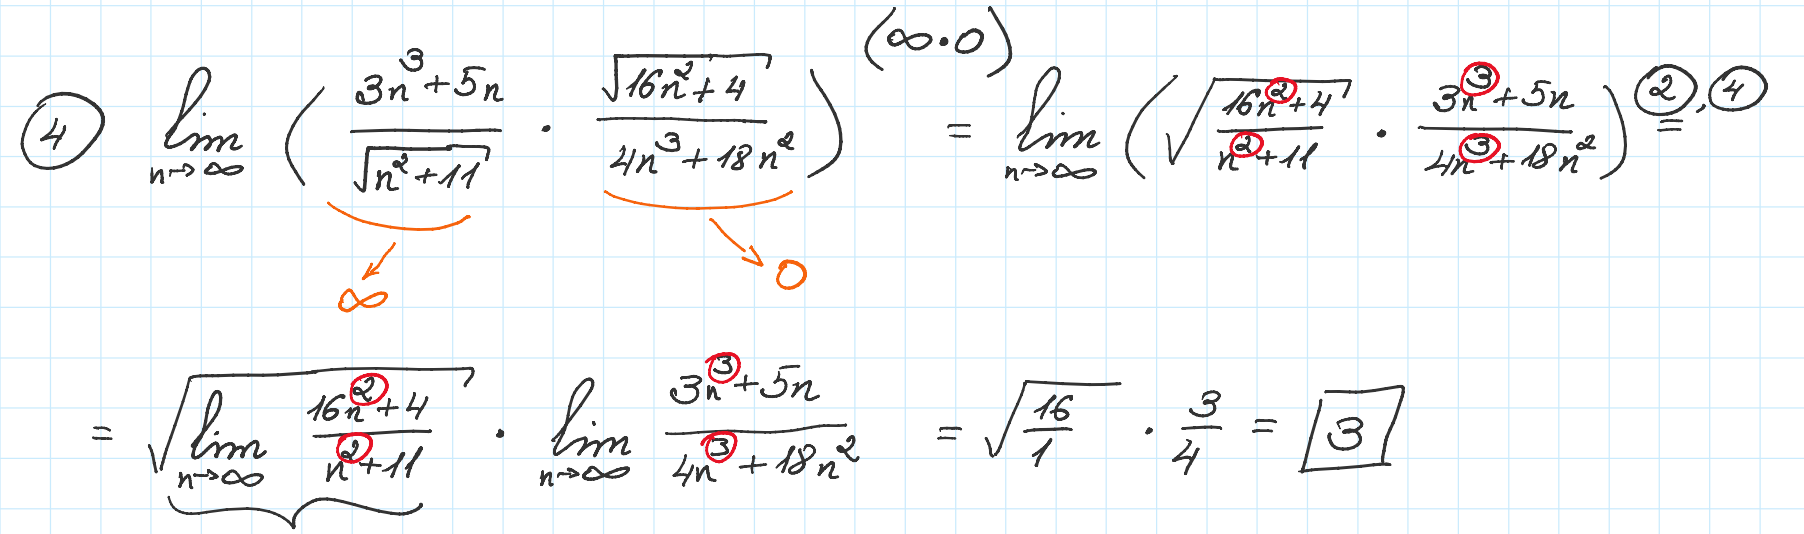 ④ lim n→∞ ( (3n³+5n)/√(n²+11) · √(16n²+4)/(4n³+18n²) ) (∞·0) = lim n→∞ ( √((16n²+4)/(n²+11)) · (3n³+5n)/(4n³+18n²) ) ②,④ =
∞ 0
= √(lim n→∞ (16n²+4)/(n²+11)) · lim n→∞ (3n³+5n)/(4n³+18n²) = √(16/1) · 3/4 = 3